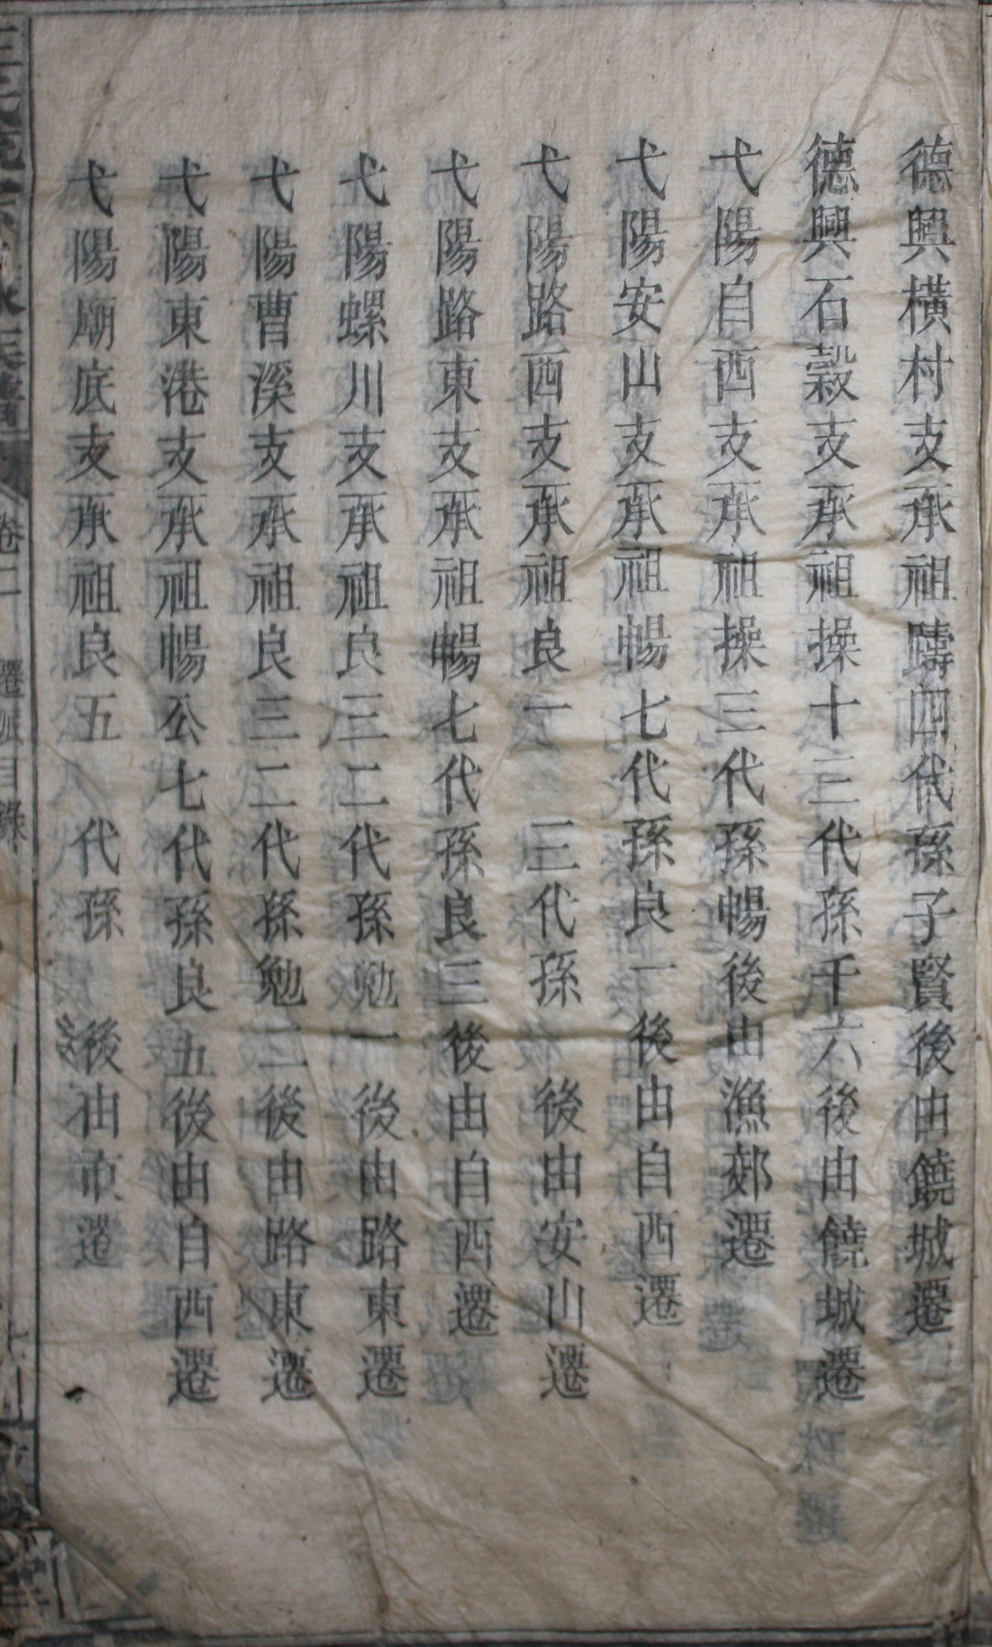 德興橫村支承祖疇四代孫子賢後由饒城遷
德興石穀支承祖操十三代孫千六後由饒城遷
弋陽自西支承祖操三代孫暢後由漁鄈遷
弋陽安山支承祖暢七代孫良一後由自西遷
弋陽路西支承祖良一三代孫後由安山遷
弋陽路東支承祖暢七代孫良三後由自西遷
弋陽螺川支承祖良三二代孫勉一後由路東遷
弋陽曹溪支承祖良三二代孫勉二後由路東遷
弋陽東港支承祖暢公七代孫良五後由自西遷
弋陽廟底支承祖良五代孫後由市遷
卷二 遷派目錄